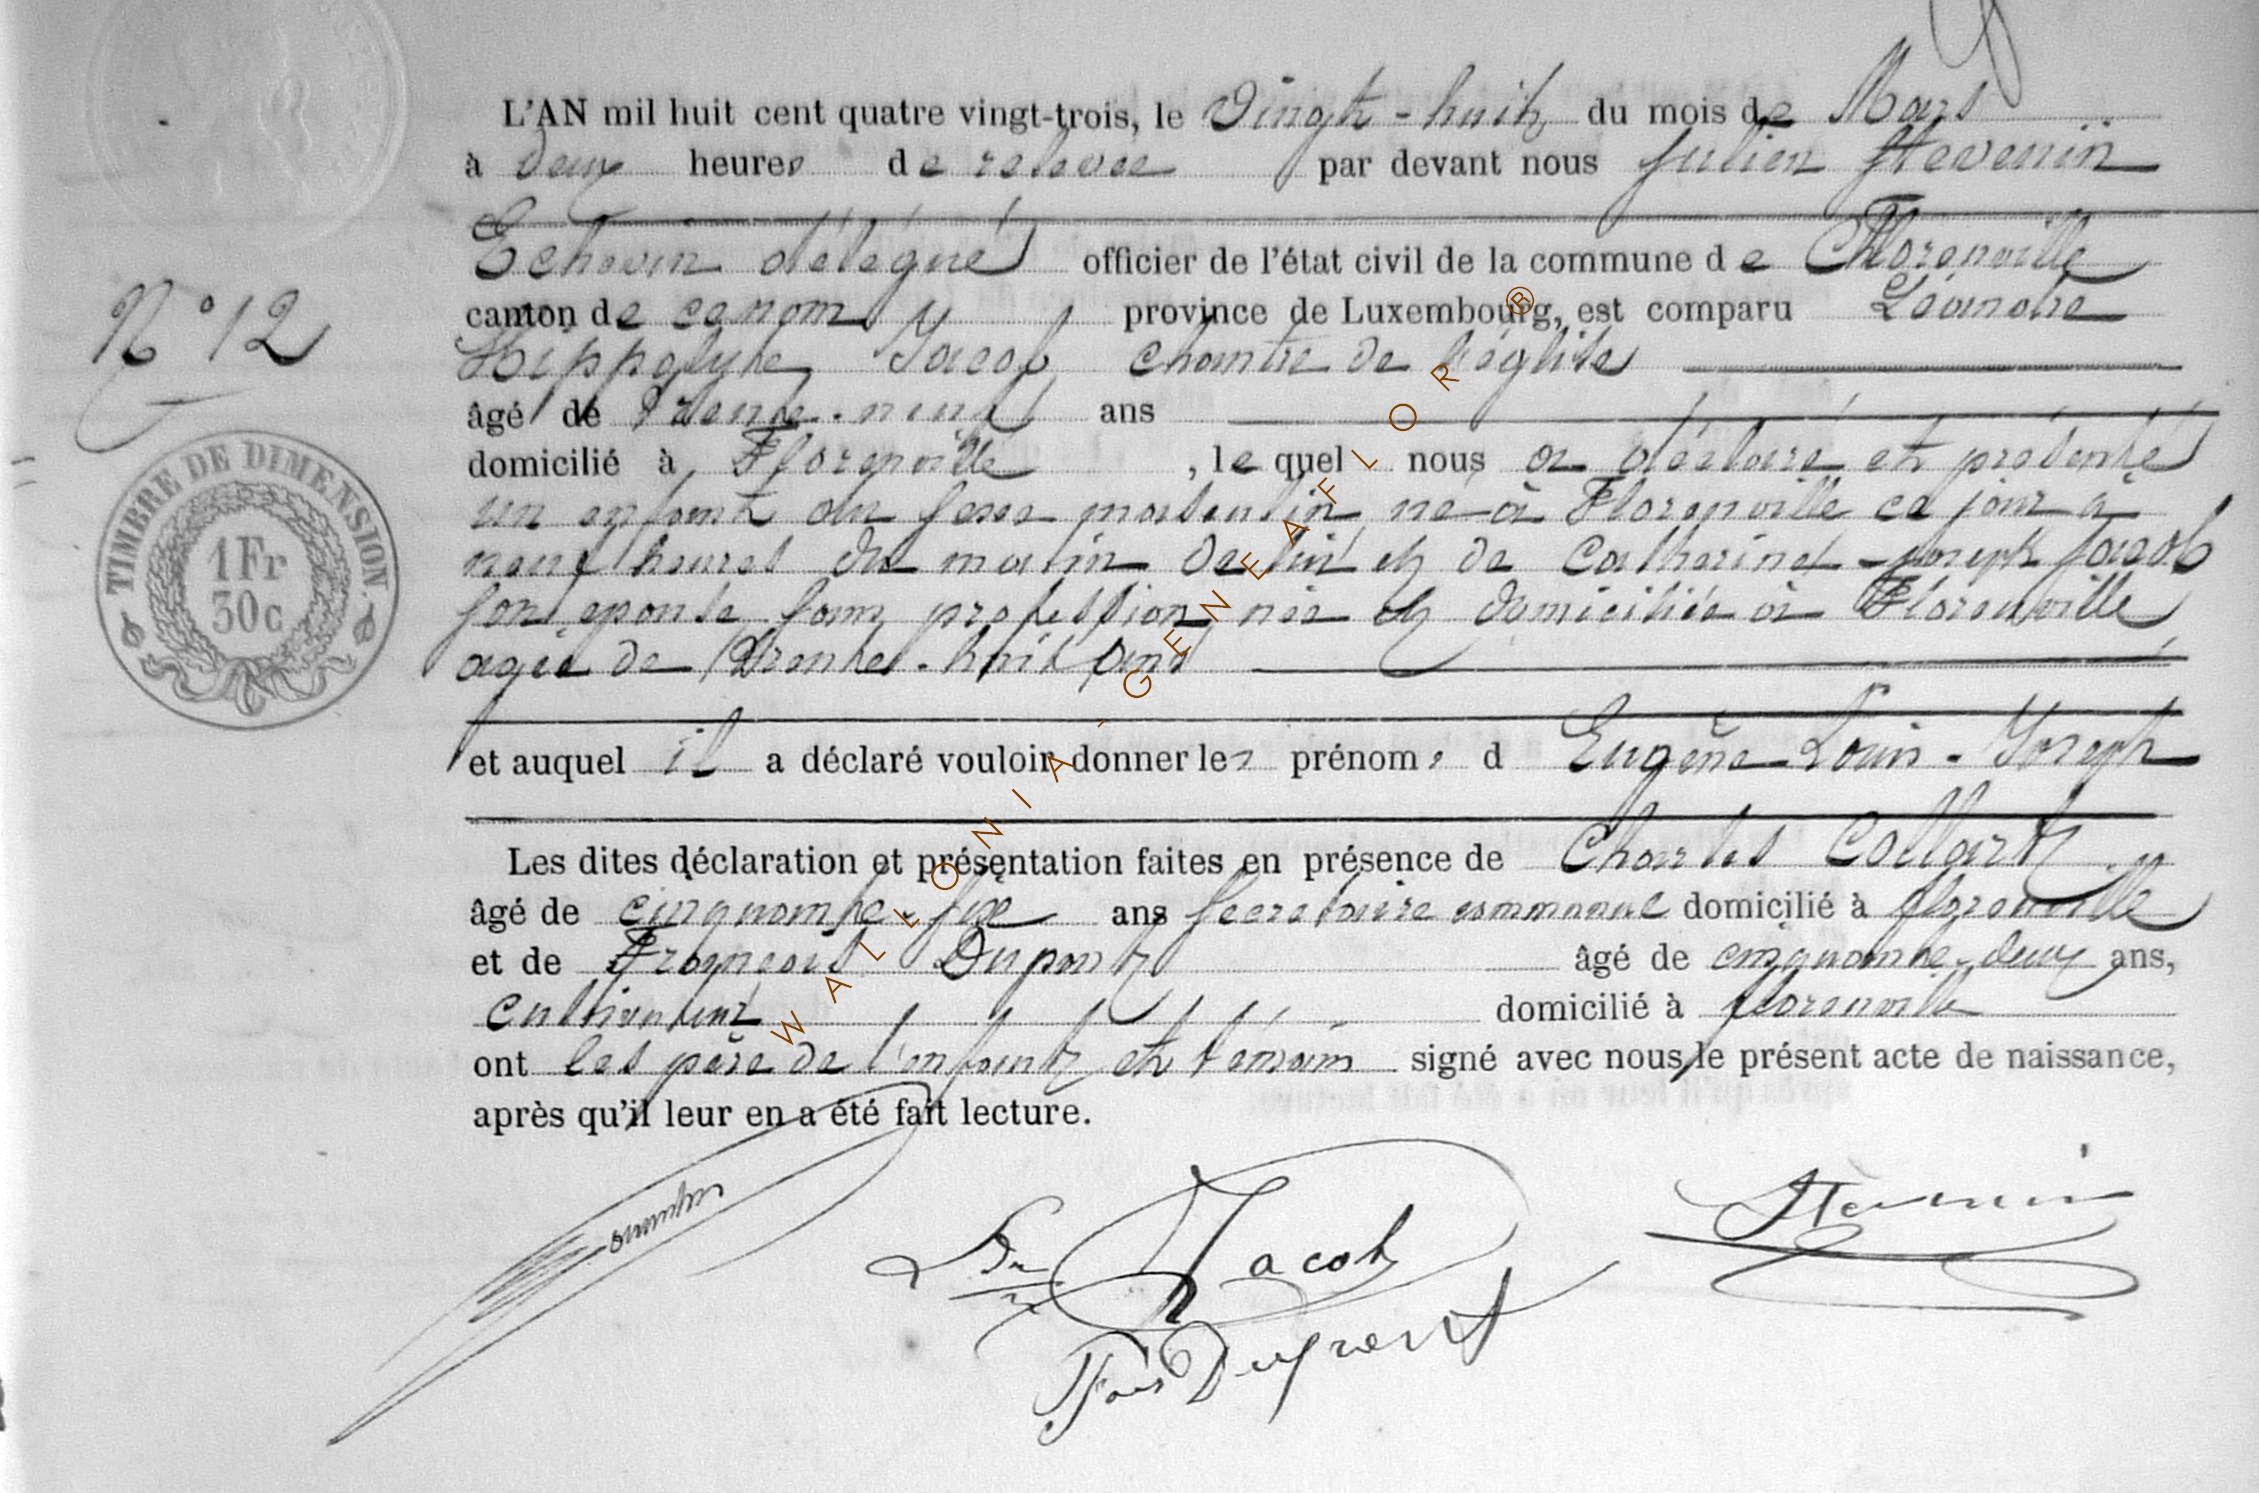 L'AN mil huit cent quatre vingt-trois, le Vingt-huit du mois de Mars
à deux heures de relevée par devant nous Julien Stevenin
Echevin délégué officier de l'état civil de la commune de Florenville
canton de ce nom province de Luxembourg, est comparu Léandre
Hippolyte Jacob chantre de l'église
âgé de Trente-neuf ans
domicilié à Florenville, le quel nous a déclaré et présenté
un enfant du sexe masculin né à Florenville ce jour à
neuf heures du matin de lui et de Catherine-Joseph Jacob
son épouse sans profession née et domiciliée à Florenville
agée de Trente-huit ans
et auquel il a déclaré vouloir donner les prénoms d Eugène Louis-Joseph
Les dites déclaration et présentation faites en présence de Charles Collart
âgé de cinquante-six ans Secretaire communal domicilié à florenville
et de François Dupont âgé de cinquante-deux ans,
cultivateur domicilié à florenville
ont les père de l'enfant et témoin signé avec nous le présent acte de naissance,
après qu'il leur en a été fait lecture.
N° 12
TIMBRE DE DIMENSION
1 Fr
30 c
Jacob
Stevenin
Fois Dupont
WALLONIA-GENEAFLOR®